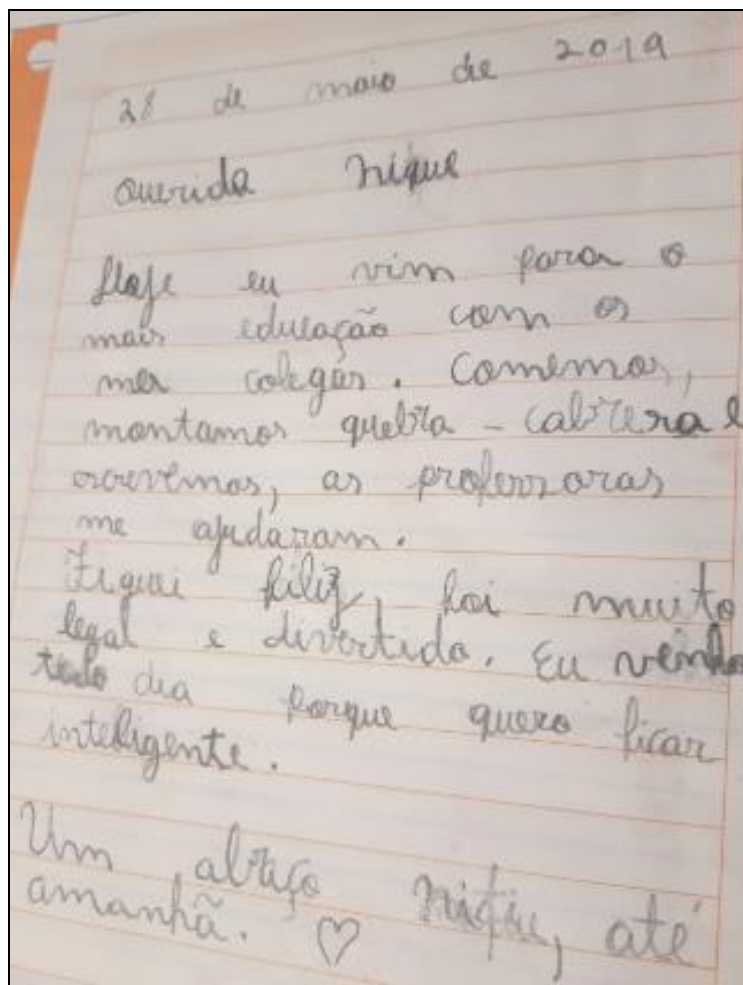 28 de maio de 2019
Querida Nique
Hoje eu vim para o
mais educação com os
meu colegas. Comemos,
montamos quebra - cabeça e
escrevemos, as professoras
me ajudaram.
Fiquei feliz, foi muito
legal e divertido. Eu venho
todo dia porque quero ficar
inteligente.
Um abraço Nique, até
amanhã. ♡